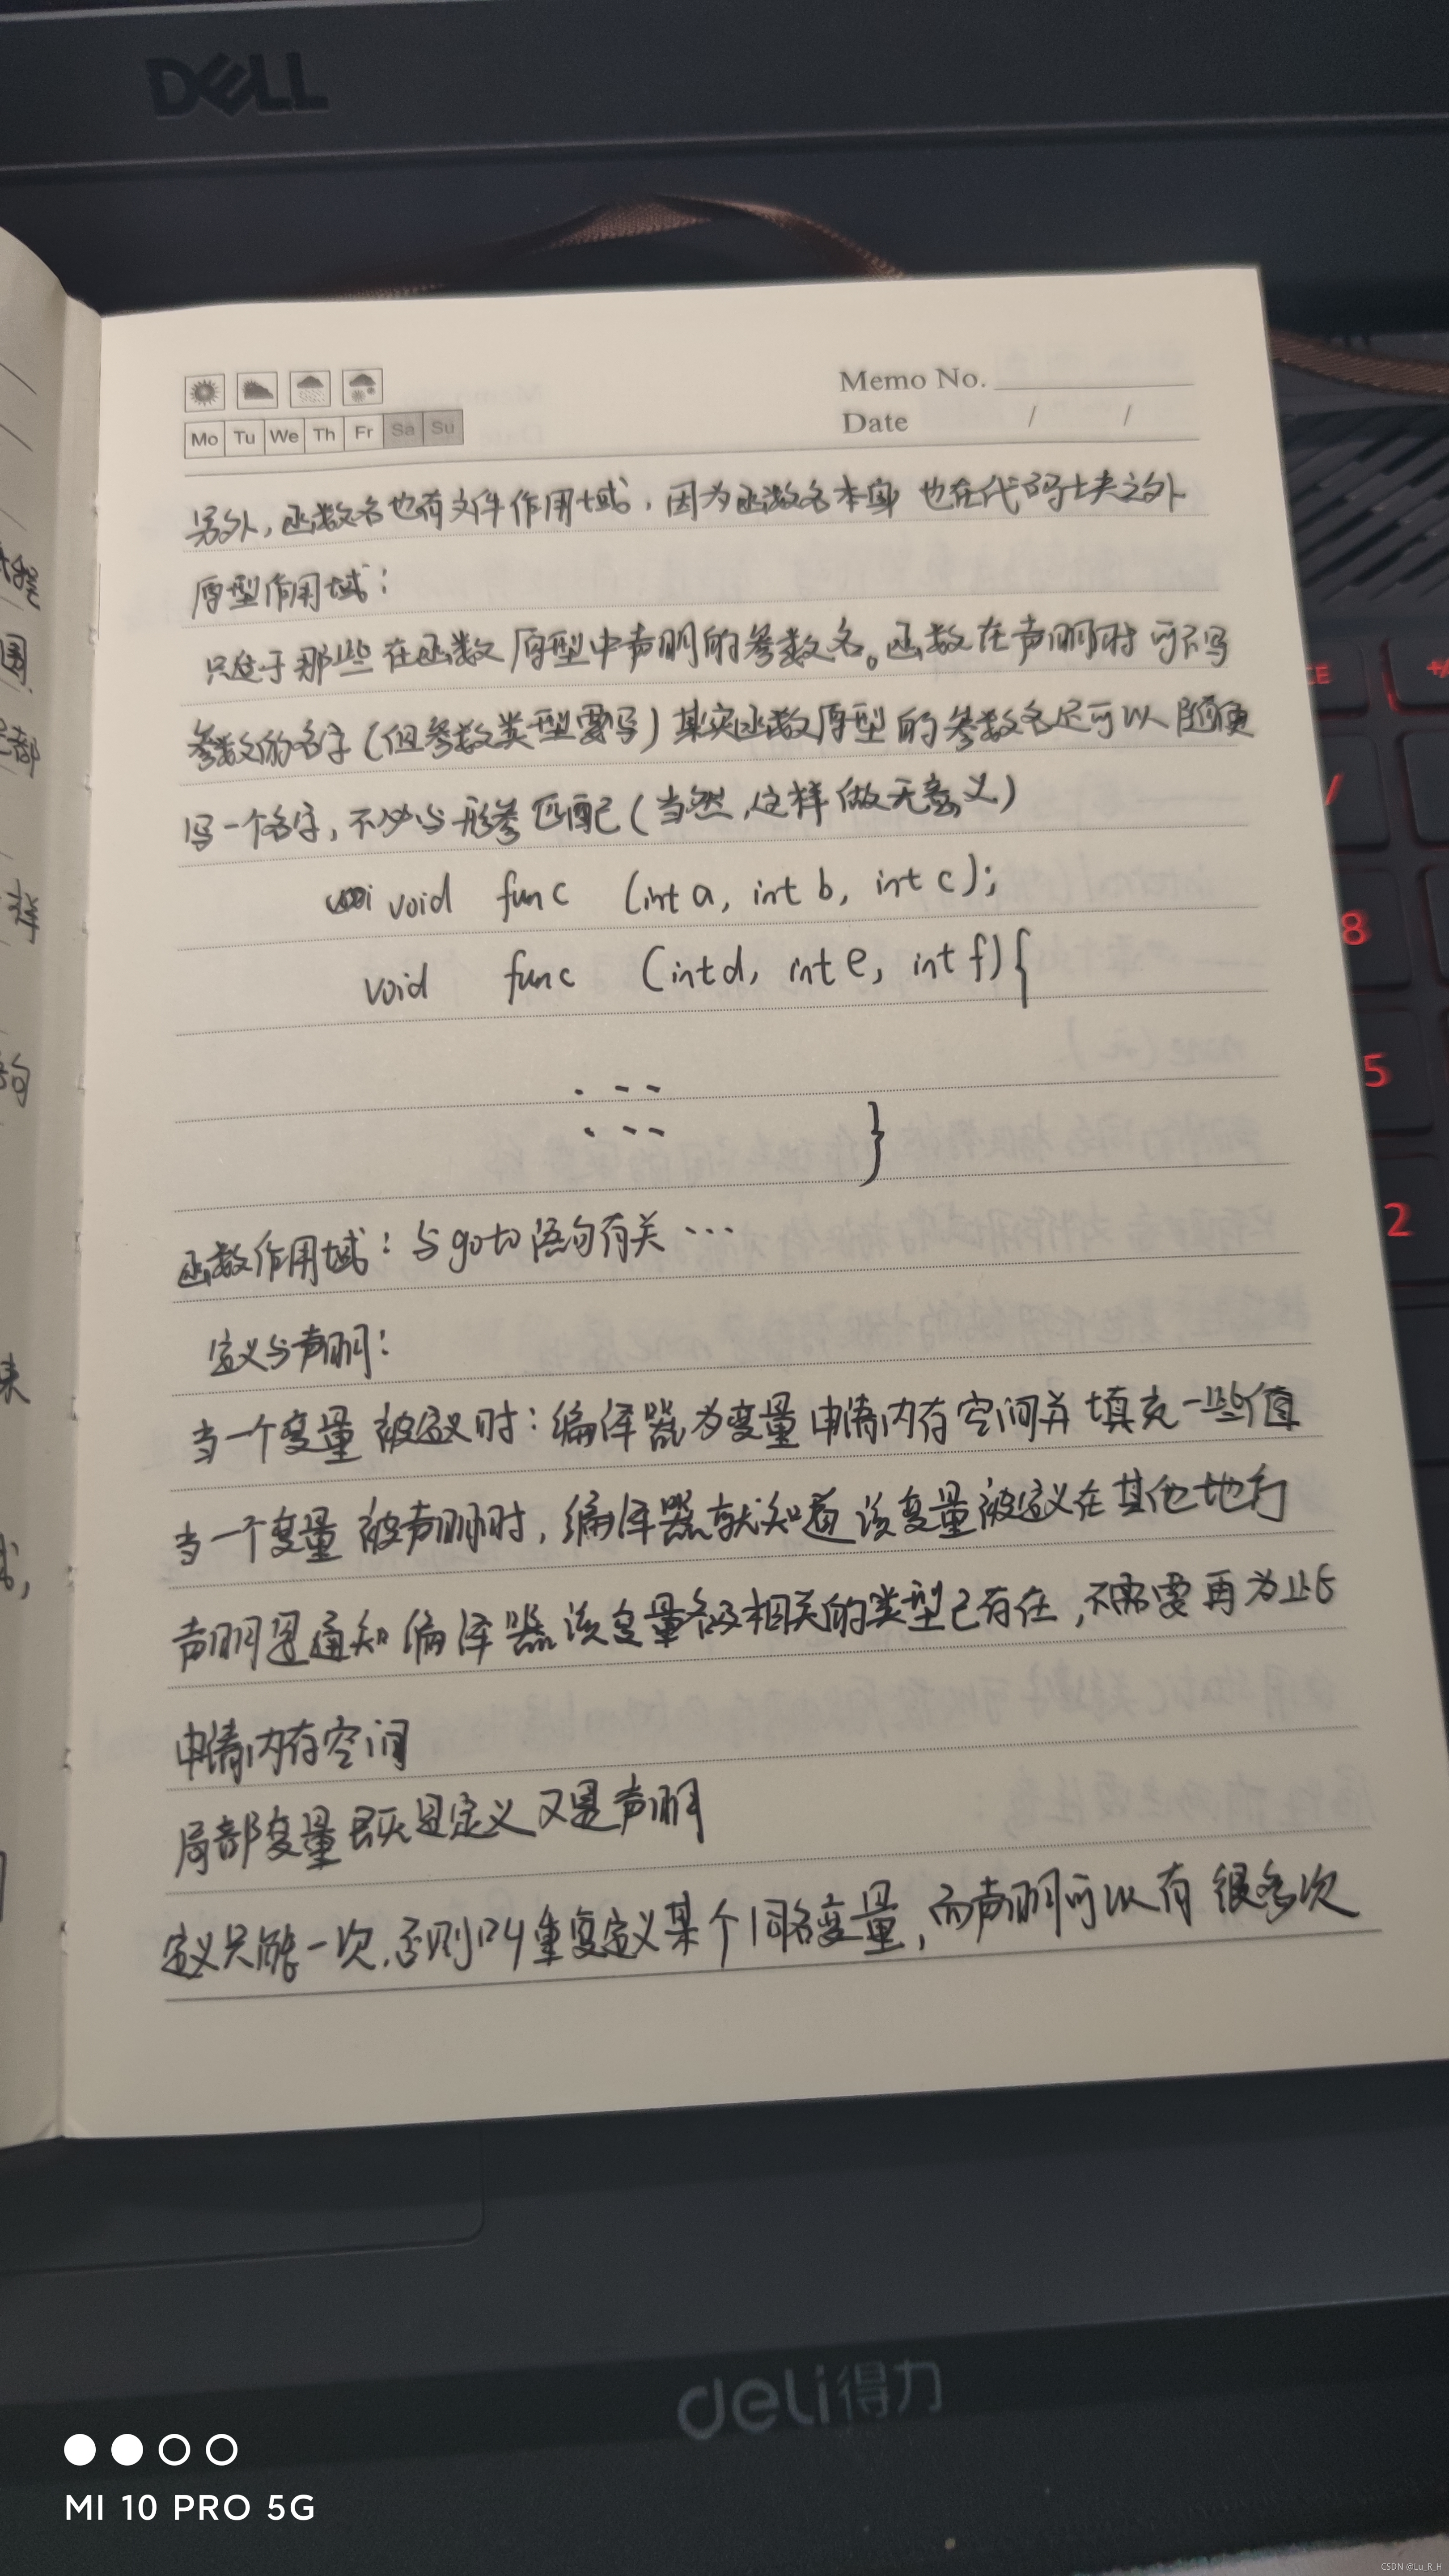 DELL
Memo No.
Mo Tu We Th Fr Sa Su
Date / /
另外,函数名也有文件作用域,因为函数名本身也在代码块之外
原型作用域:
只适于那些在函数原型中声明的参数名。函数在声明时可不写
参数的名字(但参数类型要写)其实函数原型的参数名还可以随便
写一个名字,不必与形参匹配(当然,这样做无意义)
void func (int a, int b, int c);
void func (int d, int e, int f){
}
函数作用域:与goto语句有关…
定义与声明:
当一个变量被定义时:编译器为变量申请内存空间并填充一些值
当一个变量被声明时,编译器就知道该变量被定义在其他地方
声明是通知编译器该变量名及相关的类型已存在,不需要再为此
申请内存空间
局部变量既是定义又是声明
定义只能一次,否则叫重复定义某个同名变量,而声明可以有很多次
+/
/
8
5
2
deli得力
MI 10 PRO 5G
CSDN @Lu_R_H